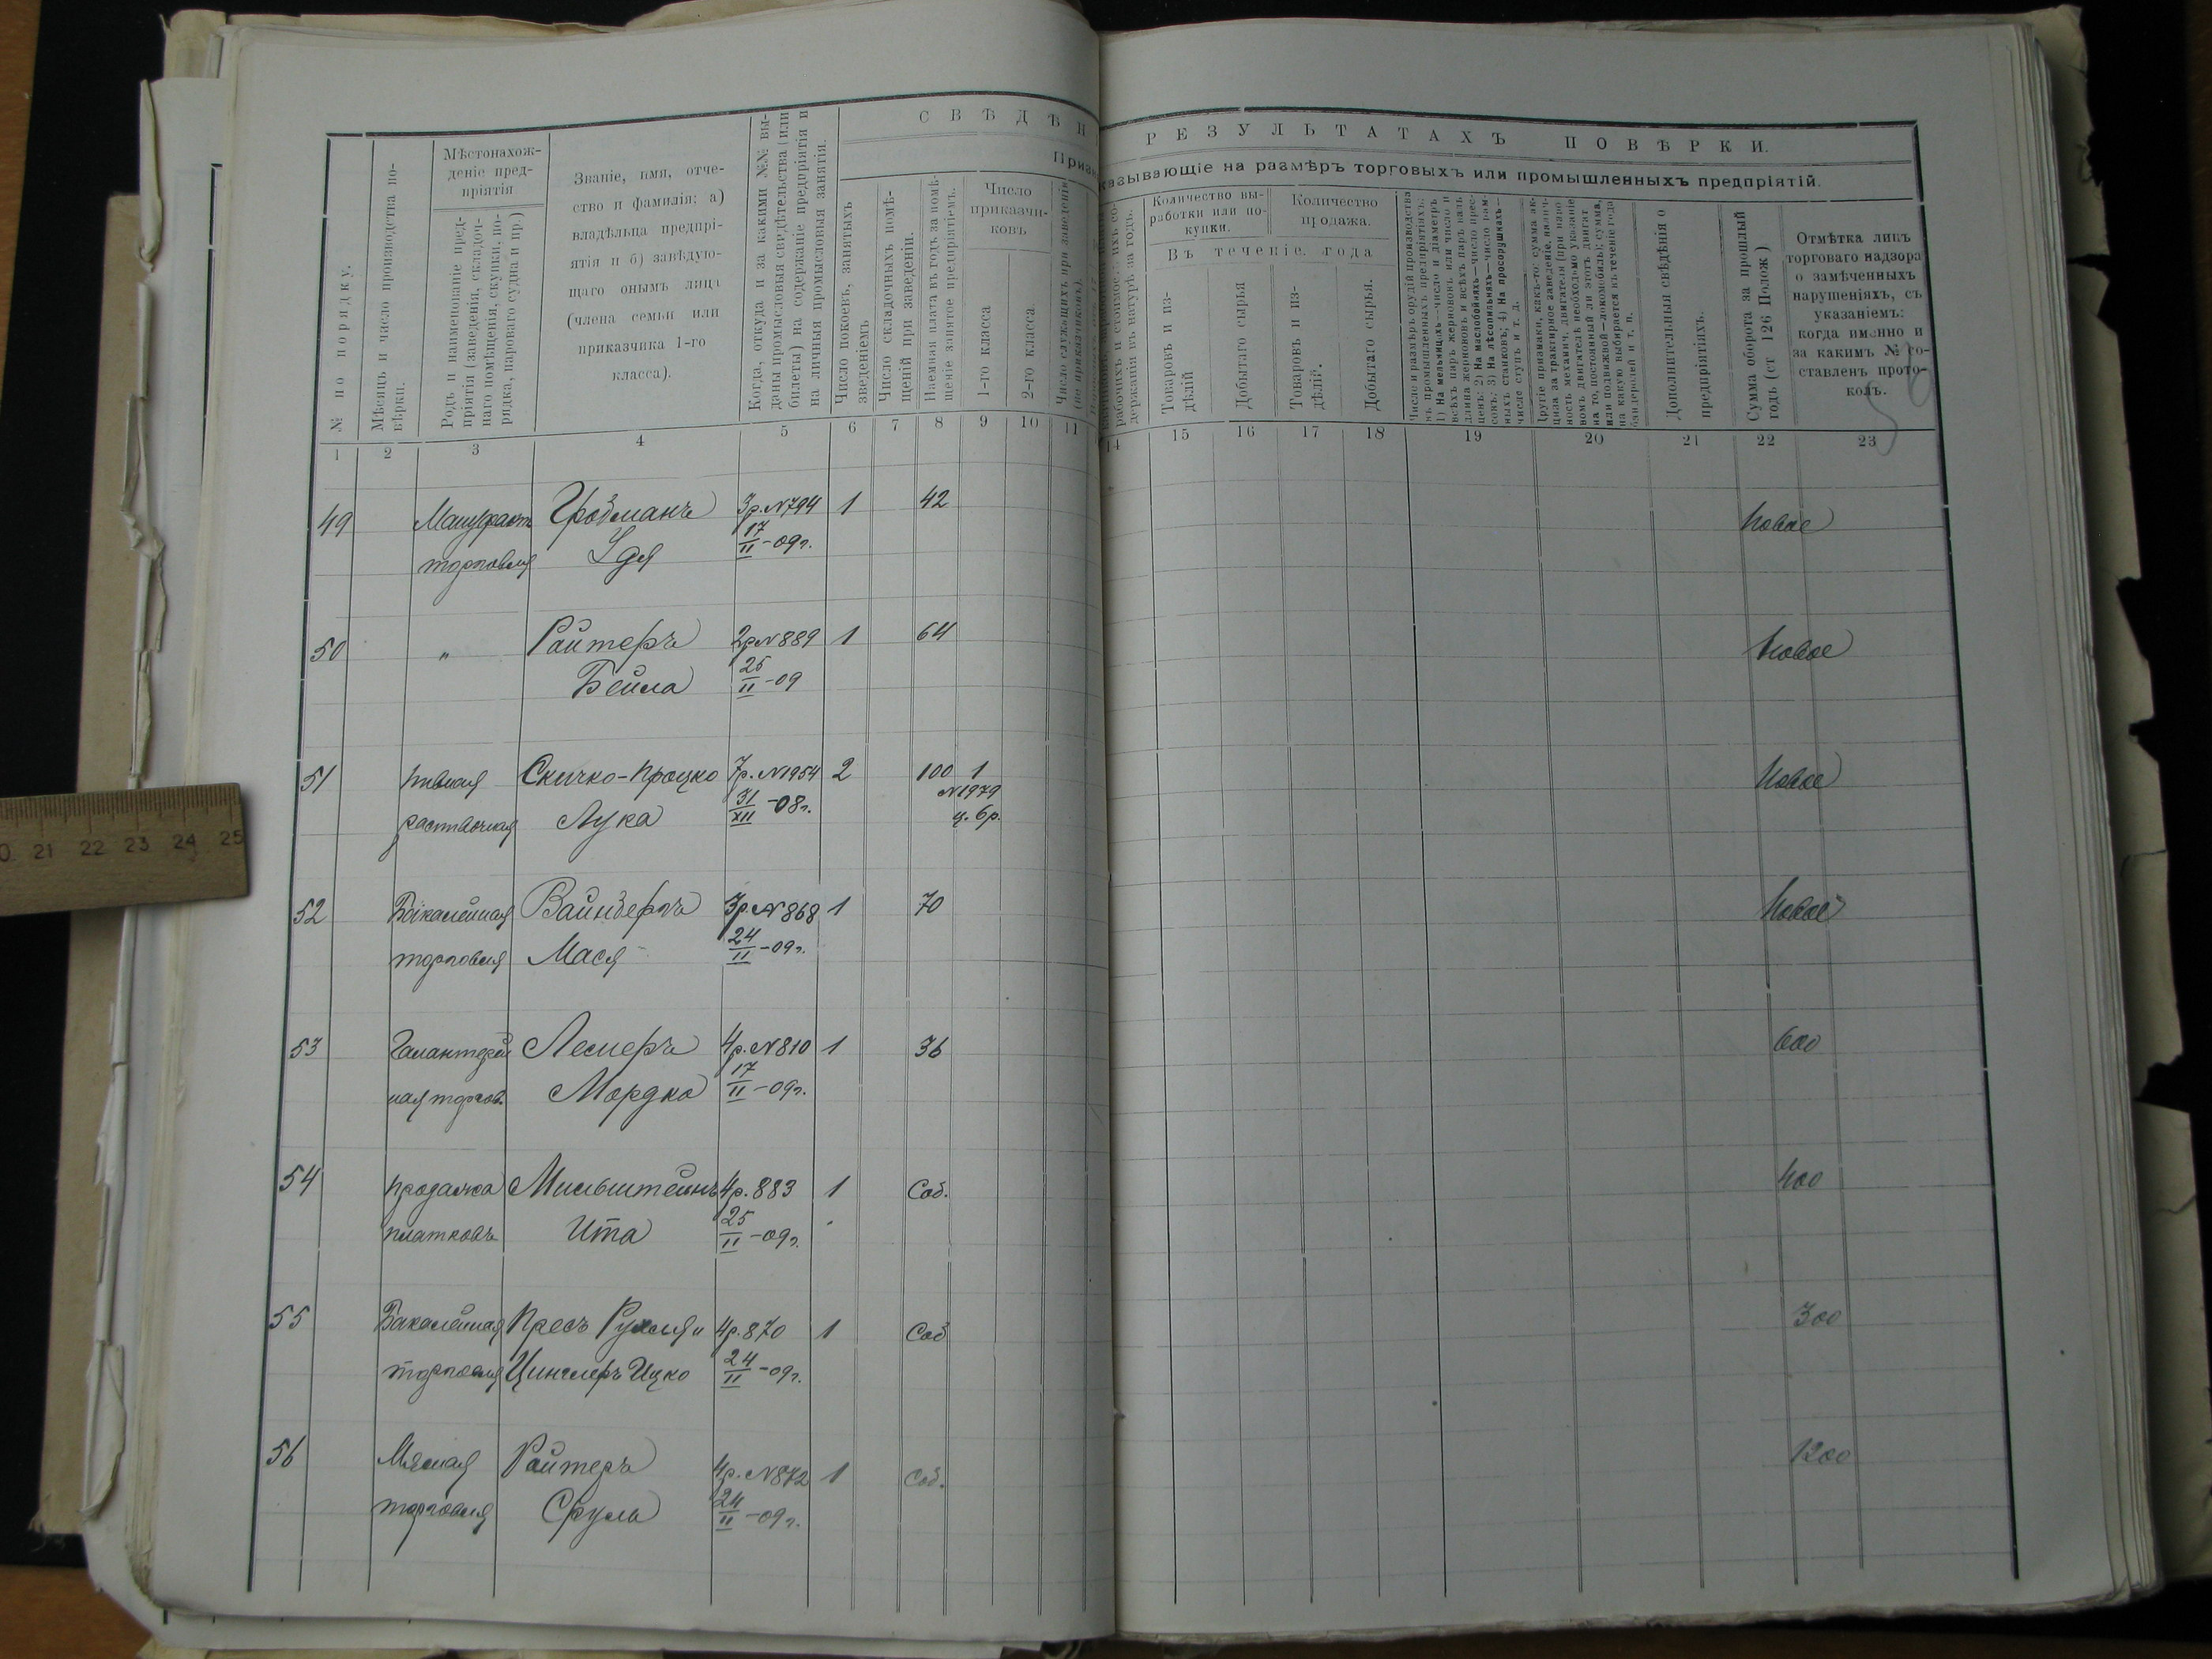 СВѢДѢН
РЕЗУЛЬТАТАХЪ ПОВѢРКИ.
Призн
казывающіе на размѣръ торговыхъ или промышленныхъ предпріятій.
№ по порядку.
Мѣсяцъ и число производства по-
вѣрки.
Мѣстонахож-
деніе пред-
пріятія
Родъ и наименованіе пред-
пріятія (заведенія, складоч-
наго помѣщенія, скупки, по-
рядка, пароваго судна и пр.)
Званіе, имя, отче-
ство и фамилія: а)
владѣльца предпрі-
ятія и б) завѣдую-
щаго онымъ лица
(члена семьи или
приказчика 1-го
класса).
Когда, откуда и за какими №№ вы-
даны промысловыя свидѣтельства (или
билеты) на содержаніе предпріятія и
на личныя промысловыя занятія.
Число покоевъ, занятыхъ
зведеніемъ
Число складочныхъ помѣ-
щеній при заведеніи.
Наемная плата въ годъ за помѣ-
щеніе занятое предпріятіемъ.
Число
приказчи-
ковъ
1-го класса
2-го класса.
Число служащихъ при заведеніи
(не приказчиковъ).
рабочихъ и стоимость ихъ со-
держанія въ натурѣ за годъ.
Количество вы-
работки или по-
купки.
Количество
продажа.
Въ теченіе года
Товаровъ и из-
дѣлій
Добытаго сырья
Товаровъ и из-
дѣлій.
Добытаго сырья.
Число и размѣръ орудій производства
въ промышленныхъ предпріятіяхъ:
1) На мельницахъ—число и діаметръ
всѣхъ паръ жернововъ или число и
длина жернововъ и всѣхъ паръ валь-
цевъ: 2) На маслобойняхъ—число прес-
совъ: 3) На лѣсопильняхъ—число рам-
ныхъ станковъ; 4) На просорушкахъ—
число ступъ и т. д.
Другіе признаки, какъ-то: сумма ак-
циза за трактирное заведеніе, налич-
ность механич. двигателя (при паро-
вомъ двигателѣ необходимо указаніе
на то, постоянный ли этотъ двигат
или подвижной—локомобиль); сумма,
на какую выбирается въ теченіе года
бандеролей и т. п.
Дополнительныя свѣдѣнія о
предпріятіяхъ.
Сумма оборота за прошлый
годъ (ст 126 Полож)
Отмѣтка лицъ
торговаго надзора
о замѣченныхъ
нарушеніяхъ, съ
указаніемъ:
когда именно и
за какимъ № со-
ставленъ прото-
колъ.
1 2 3 4 5 6 7 8 9 10 11 14 15 16 17 18 19 20 21 22 23
49 Мануфакт Гройсманъ 3р. №794 1 42 Новое
торговля Удя 17/II -09г.
50 " Райтеръ 2р №889 1 64 Новое
Бейла 25/II -09
51 Пивная Скичко-Процко 7р. №1954 2 100 1 Новое
распивочная Лука 31/XII -08г. №1979
ц. 6р.
52 Бакалейная Вайнбергъ 3р. №868 1 70 Новое
торговля Мася 24/II -09г.
53 Галантерей Леснеръ 4р. №810 1 36 600
ная торгов. Мордко 17/II -09г.
54 продажа Мильштейнъ 4р. 883 1 Соб. 400
платковъ Ита 25/II -09г.
55 Бакалейная Пресъ Рухля и 4р. 870 1 Соб 300
торговля Цинглеръ Ицко 24/II -09г.
56 Мясная Райтеръ 4р. №872 1 Соб. 1200
торговля Сруль 24/II -09г.
21 22 23 24 25